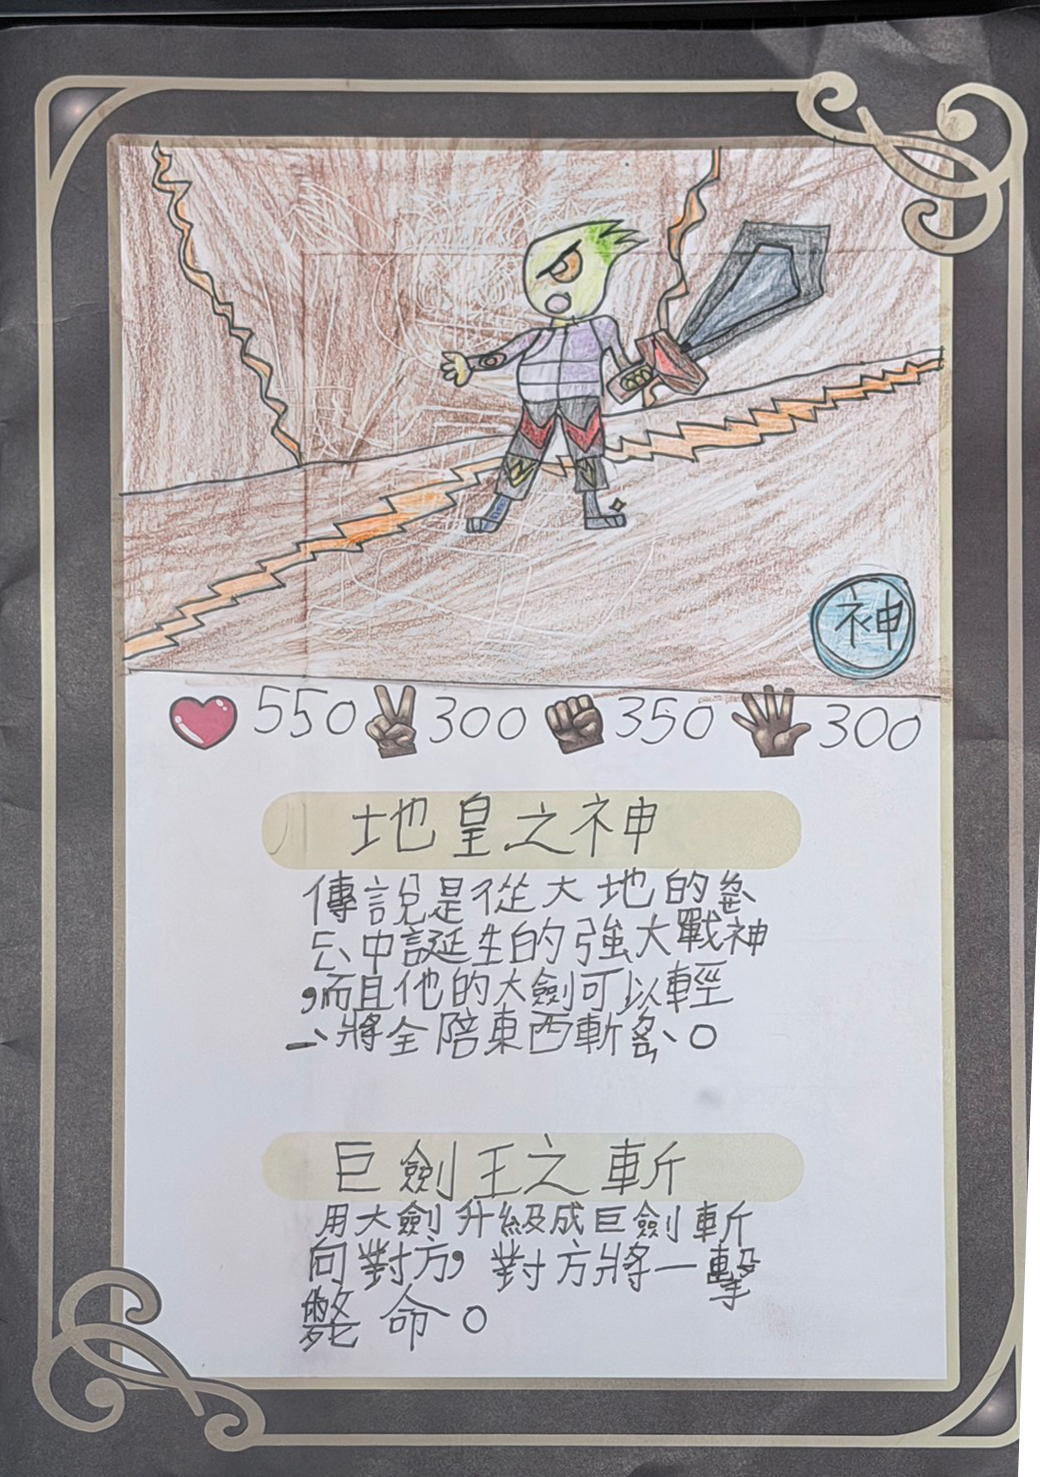 神
550 300 350 300
地皇之神
傳說是從大地的
中誕生的強大戰神
,而且他的大劍可以輕
ㄧˋ將全陪東西斬。
巨劍王之斬
用大劍升級成巨劍斬
向對方,對方將一擊
斃命。